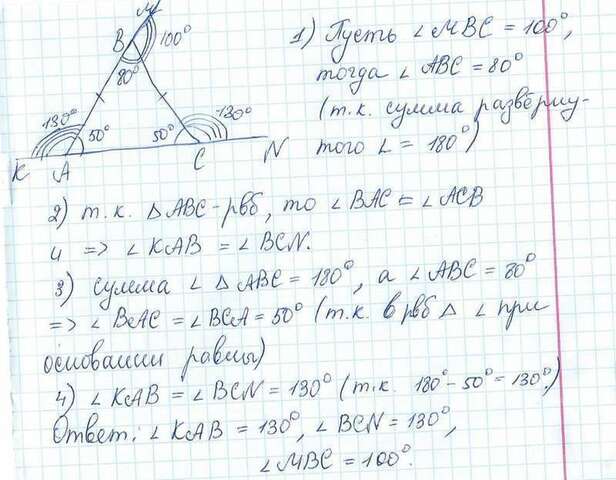 M
B 100°
80°
130° 50° 50° 130°
K A C N
1) Пусть ∠MBC = 100°,
тогда ∠ABC = 80°
(т.к. сумма разверну-
того ∠ = 180°)
2) т.к. △ABC-рвб, то ∠BAC = ∠ACB
и => ∠KAB = ∠BCN.
3) сумма ∠ △ABC = 180°, а ∠ABC = 80°
=> ∠BAC = ∠BCA = 50° (т.к. в рвб △ ∠ при
основании равны)
4) ∠KAB = ∠BCN = 130° (т.к. 180° - 50° = 130°)
Ответ: ∠KAB = 130°, ∠BCN = 130°,
∠MBC = 100°.